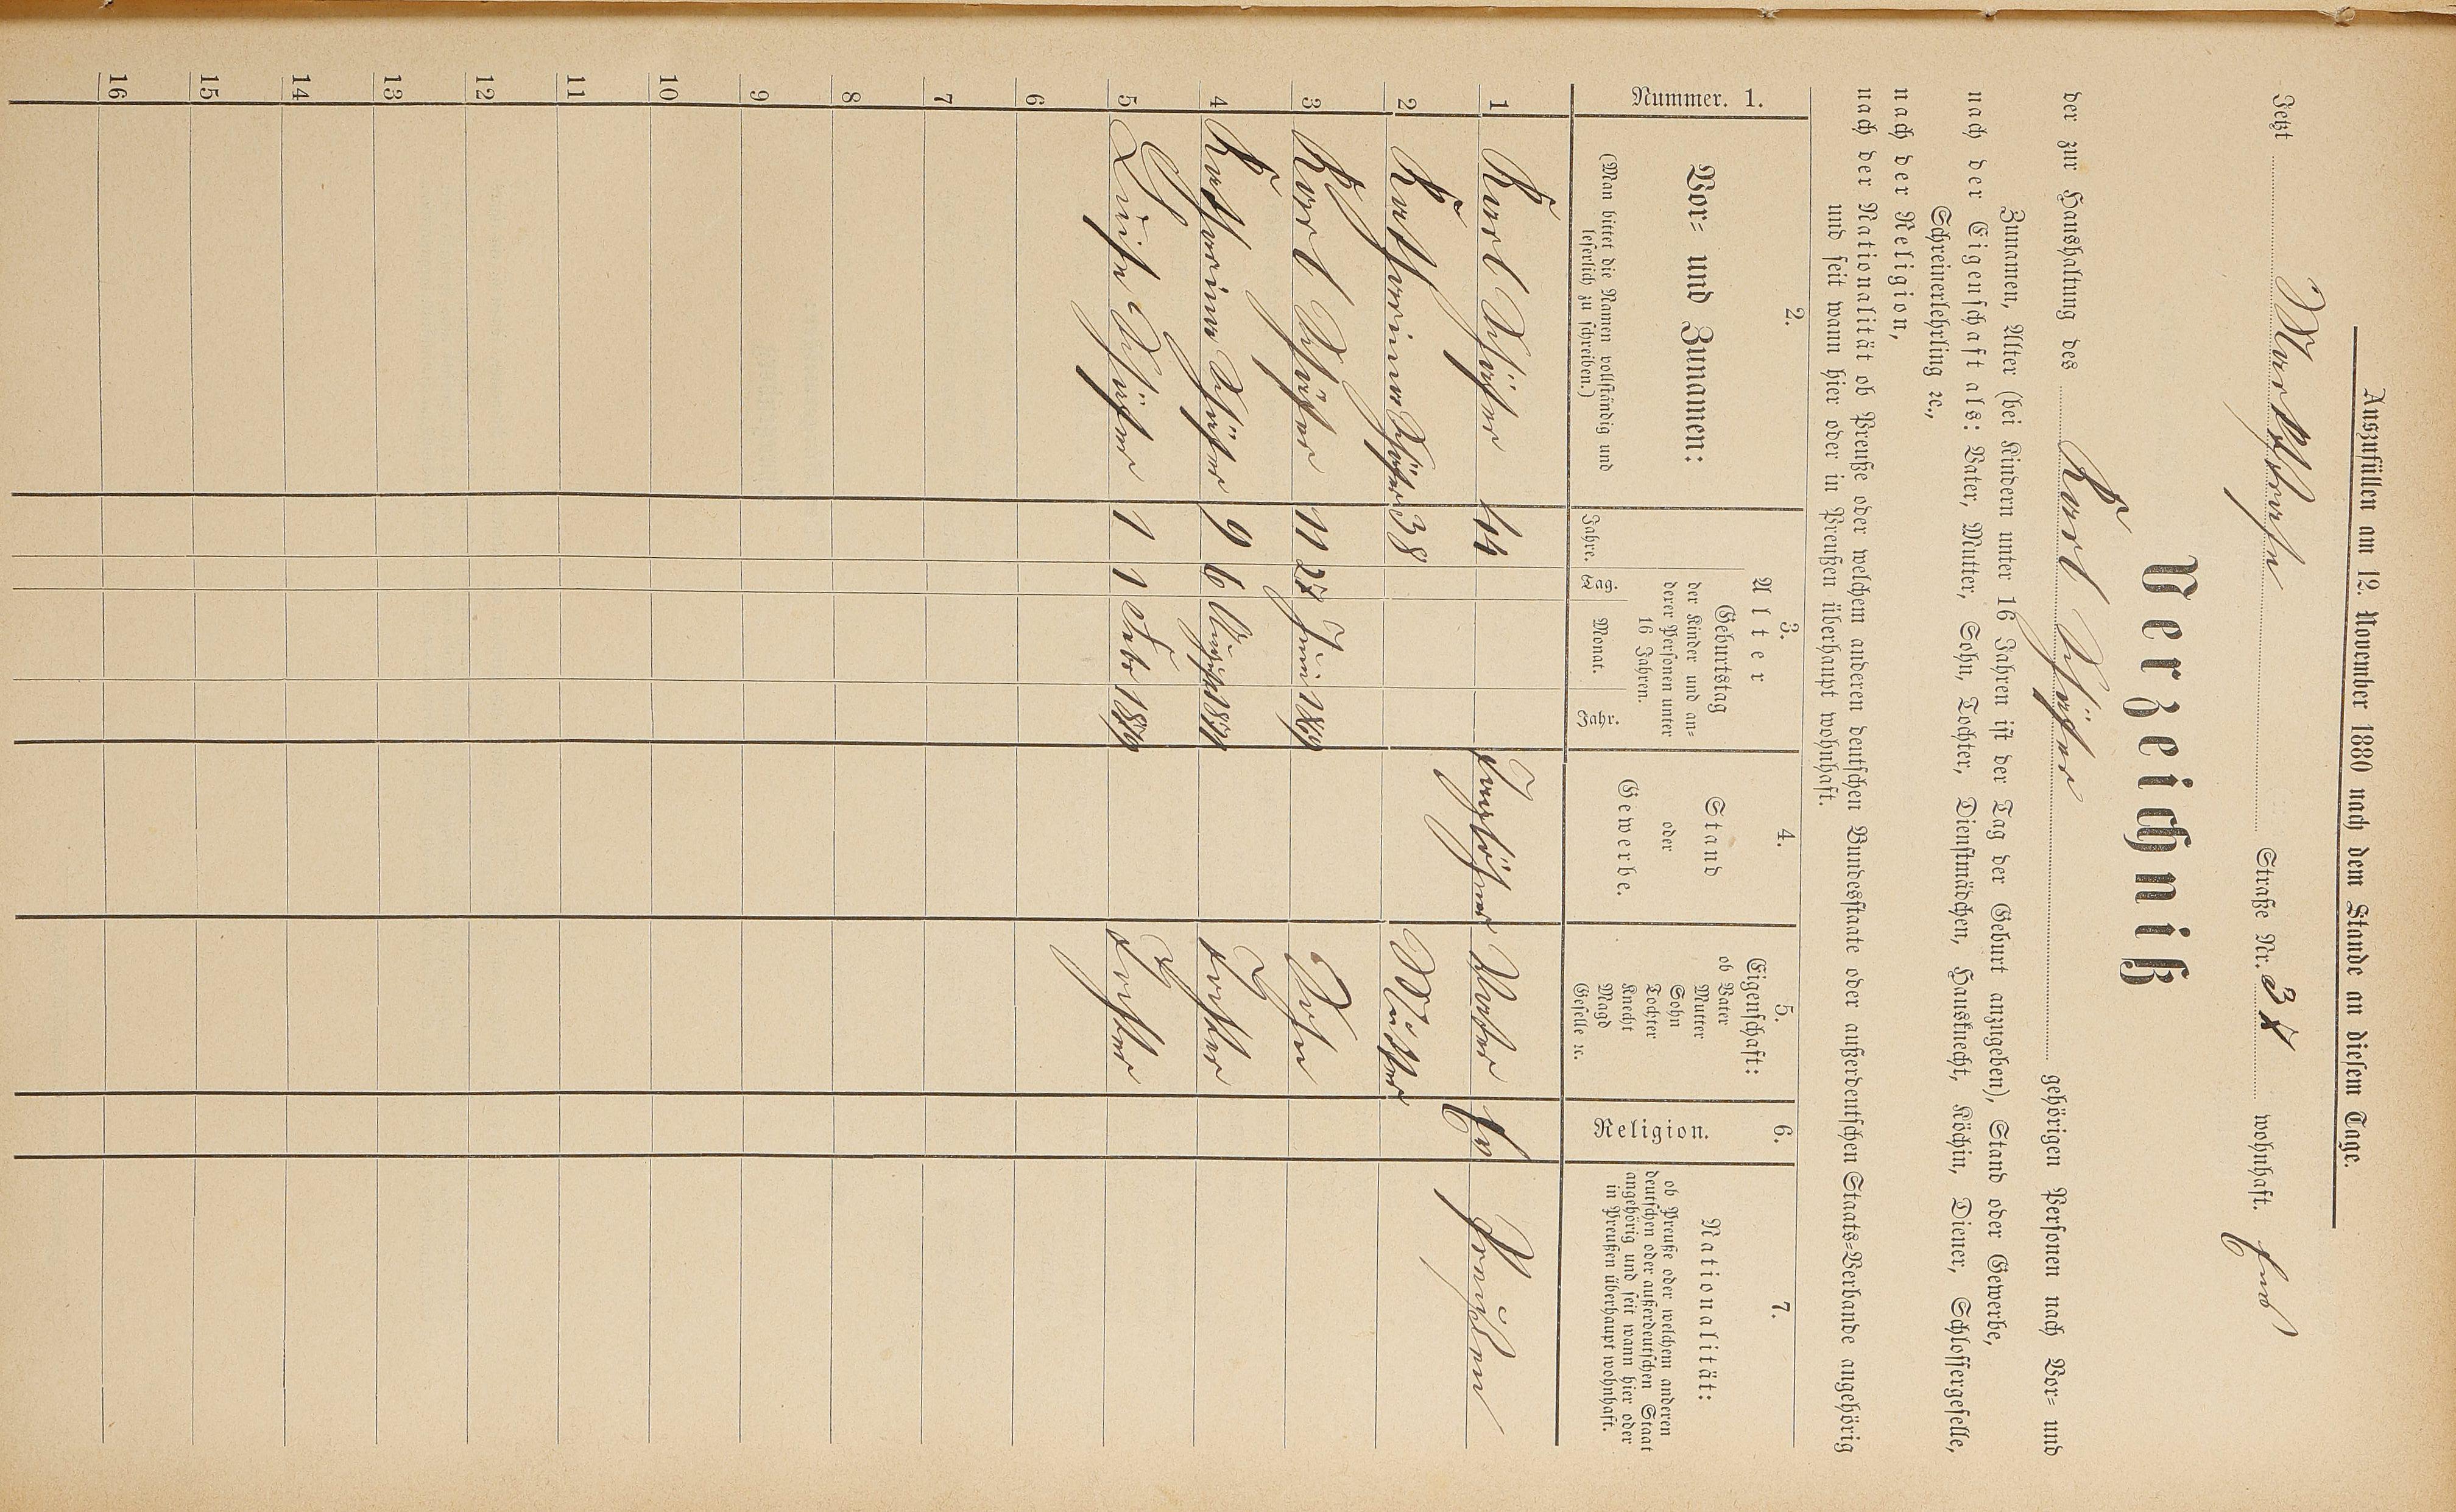 Auszufüllen am 12. November 1880 nach dem Stande an diesem Tage.
Jetzt Marktstraße Straße Nr. 37 wohnhaft.
Verzeichniß
der zur Haushaltung des Karl Schäfer gehörigen Personen nach Vor= und
Zunamen, Alter (bei Kindern unter 16 Jahren ist der Tag der Geburt anzugeben), Stand oder Gewerbe,
nach der Eigenschaft als: Vater, Mutter, Sohn, Tochter, Dienstmädchen, Hausknecht, Köchin, Diener, Schlossergeselle,
Schreinerlehrling ꝛc.,
nach der Religion,
nach der Nationalität ob Preuße oder welchem anderen deutschen Bundesstaate oder außerdeutschen Staats=Verbande angehörig
und seit wann hier oder in Preußen überhaupt wohnhaft.
Nummer. 1.
2.
Vor= und Zunamen:
(Man bittet die Namen vollständig und
leserlich zu schreiben.)
3.
Alter
Jahre.
Geburtstag
der Kinder und an=
derer Personen unter
16 Jahren.
Tag. Monat. Jahr.
4.
Stand
oder
Gewerbe.
5.
Eigenschaft:
ob Vater
Mutter
Sohn
Tochter
Knecht
Magd
Geselle ꝛc.
6.
Religion.
7.
Nationalität:
ob Preuße oder welchem anderen
deutschen oder außerdeutschen Staat
angehörig und seit wann hier oder
in Preußen überhaupt wohnhaft.
1 Karl Schäfer 44 Taglöhner Vater Ev Preußen
2 Katharina Schäfer 38 Mutter
3 Karl Schäfer 11 27 Juni 1869 Sohn
4 Katharina Schäfer 9 6 August 1871 Tochter
5 Luise Schäfer 1 1 Febr 1879 Tochter
6
7
8
9
10
11
12
13
14
15
16